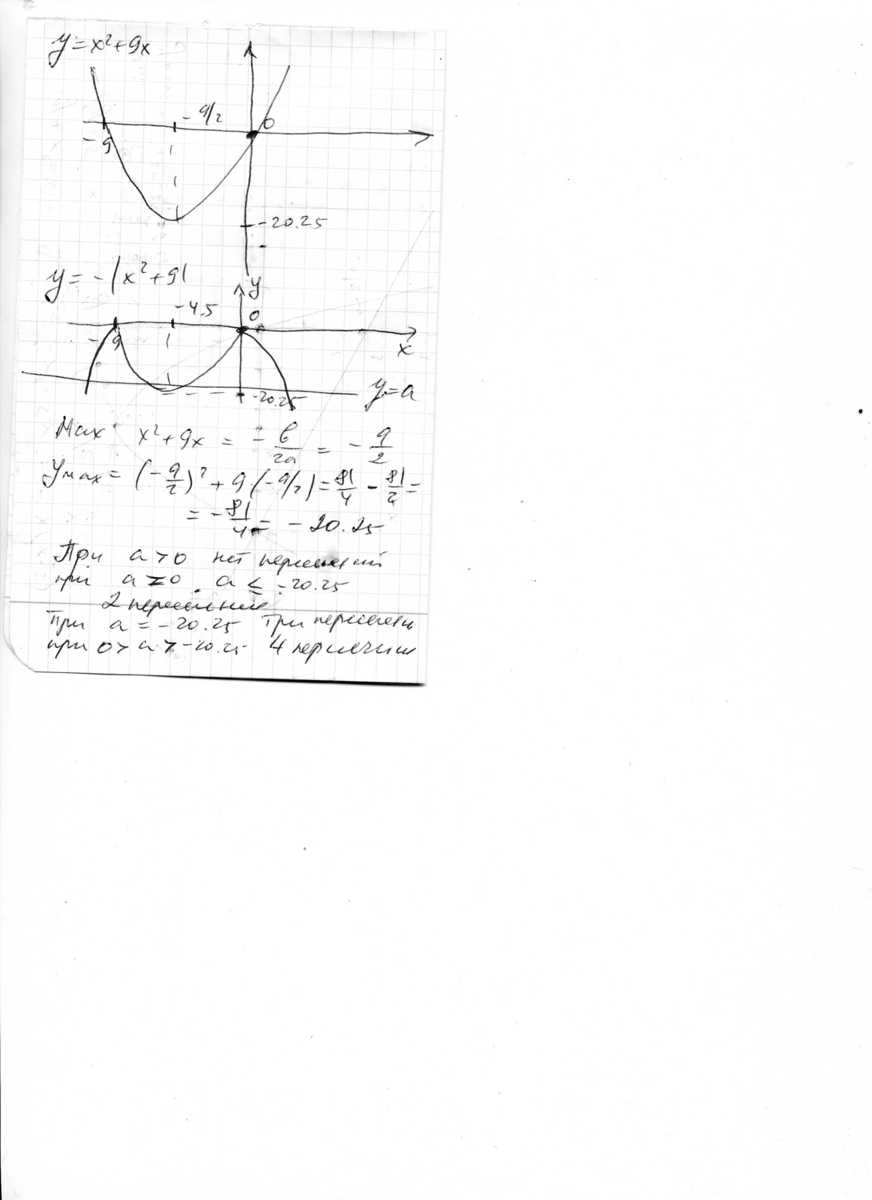 y = x² + 9x
- 9/2
0
- 9
- 20.25
y = - | x² + 9 |
y
- 4.5
0
- 9
x
y = a
- 20.25
Max x² + 9x = - b/2a = - 9/2
y max = (- 9/2)² + 9 (- 9/2) = 81/4 - 81/2 =
= - 81/4 = - 20.25
При a > 0 нет пересечений
при a = 0 , a ≤ - 20.25
2 пересечения
При a = - 20.25 Три пересечен
при 0 > a > - 20.25 4 пересечения